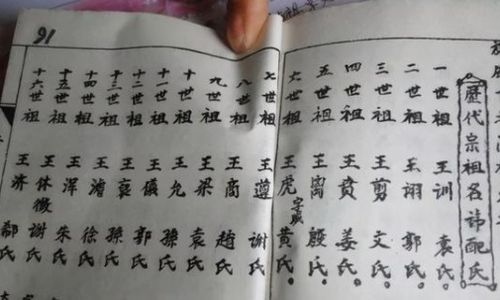 歷代宗祖名諱配氏
一世祖 王训 袁氏
二世祖 王翊 郭氏
三世祖 王剪 文氏
四世祖 王賁 姜氏
五世祖 王离 殷氏
六世祖 王虎 黄氏
七世祖 王遵 谢氏
八世祖 王商 趙氏
九世祖 王梁 袁氏
十世祖 王允 孫氏
十一世祖 王儀 郭氏
十二世祖 王裒 孫氏
十三世祖 王澹 徐氏
十四世祖 王渾 朱氏
十五世祖 王休徵 谢氏
十六世祖 王济 郗氏
16